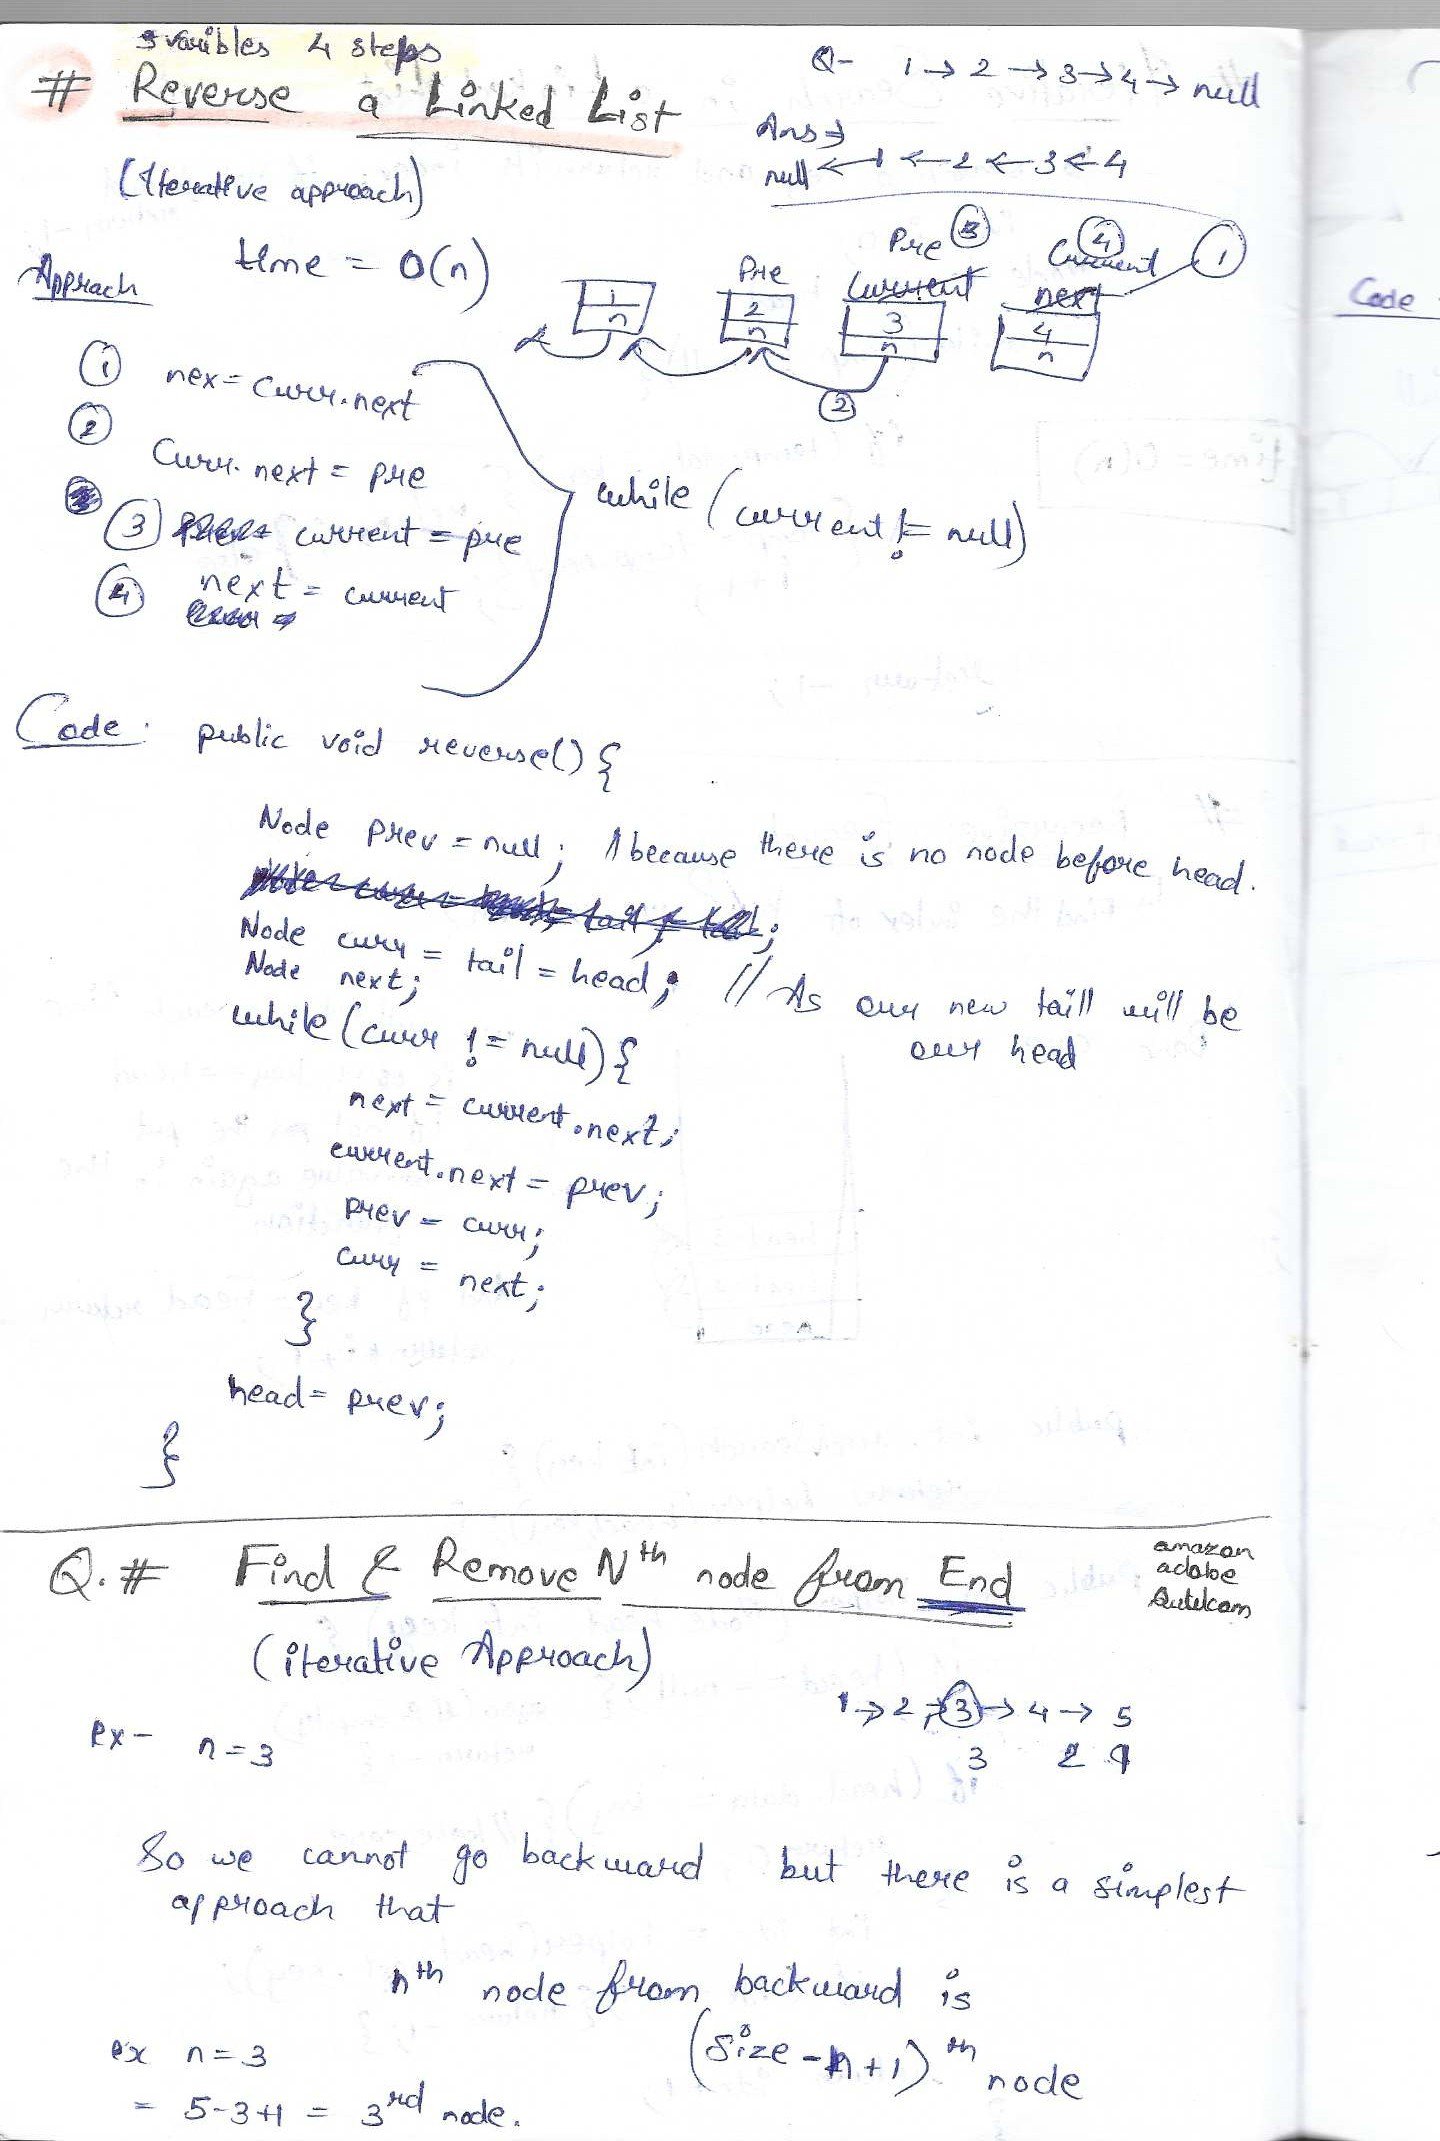 3 varibles 4 steps
# Reverse a Linked List
(Iterative approach)
Q- 1 → 2 → 3 → 4 → null
Ans ⇒
null ← 1 ← 2 ← 3 ← 4
time = O(n)
Pre 3 Current 4 1
Pre current next
1 2 3 4
n n n n
2
Apprach
1 nex = curr.next
2 Curr.next = pre
3 current = pre
4 next = current
while (current != null)
Code. public void reverse() {
Node prev = null; // because there is no node before head.
Node curr = tail = head; // As our new taill will be
our head
Node next;
while (curr != null) {
next = current.next;
current.next = prev;
prev = curr;
curr = next;
}
head = prev;
}
Q.# Find & Remove Nth node from End
amazon
adobe
(iterative Approach)
ex- n = 3
1 → 2 → 3 → 4 → 5
3 2 1
So we cannot go backward but there is a simplest
approach that
nth node from backward is
(size - n + 1)th node
ex n = 3
= 5-3+1 = 3rd node.
Code